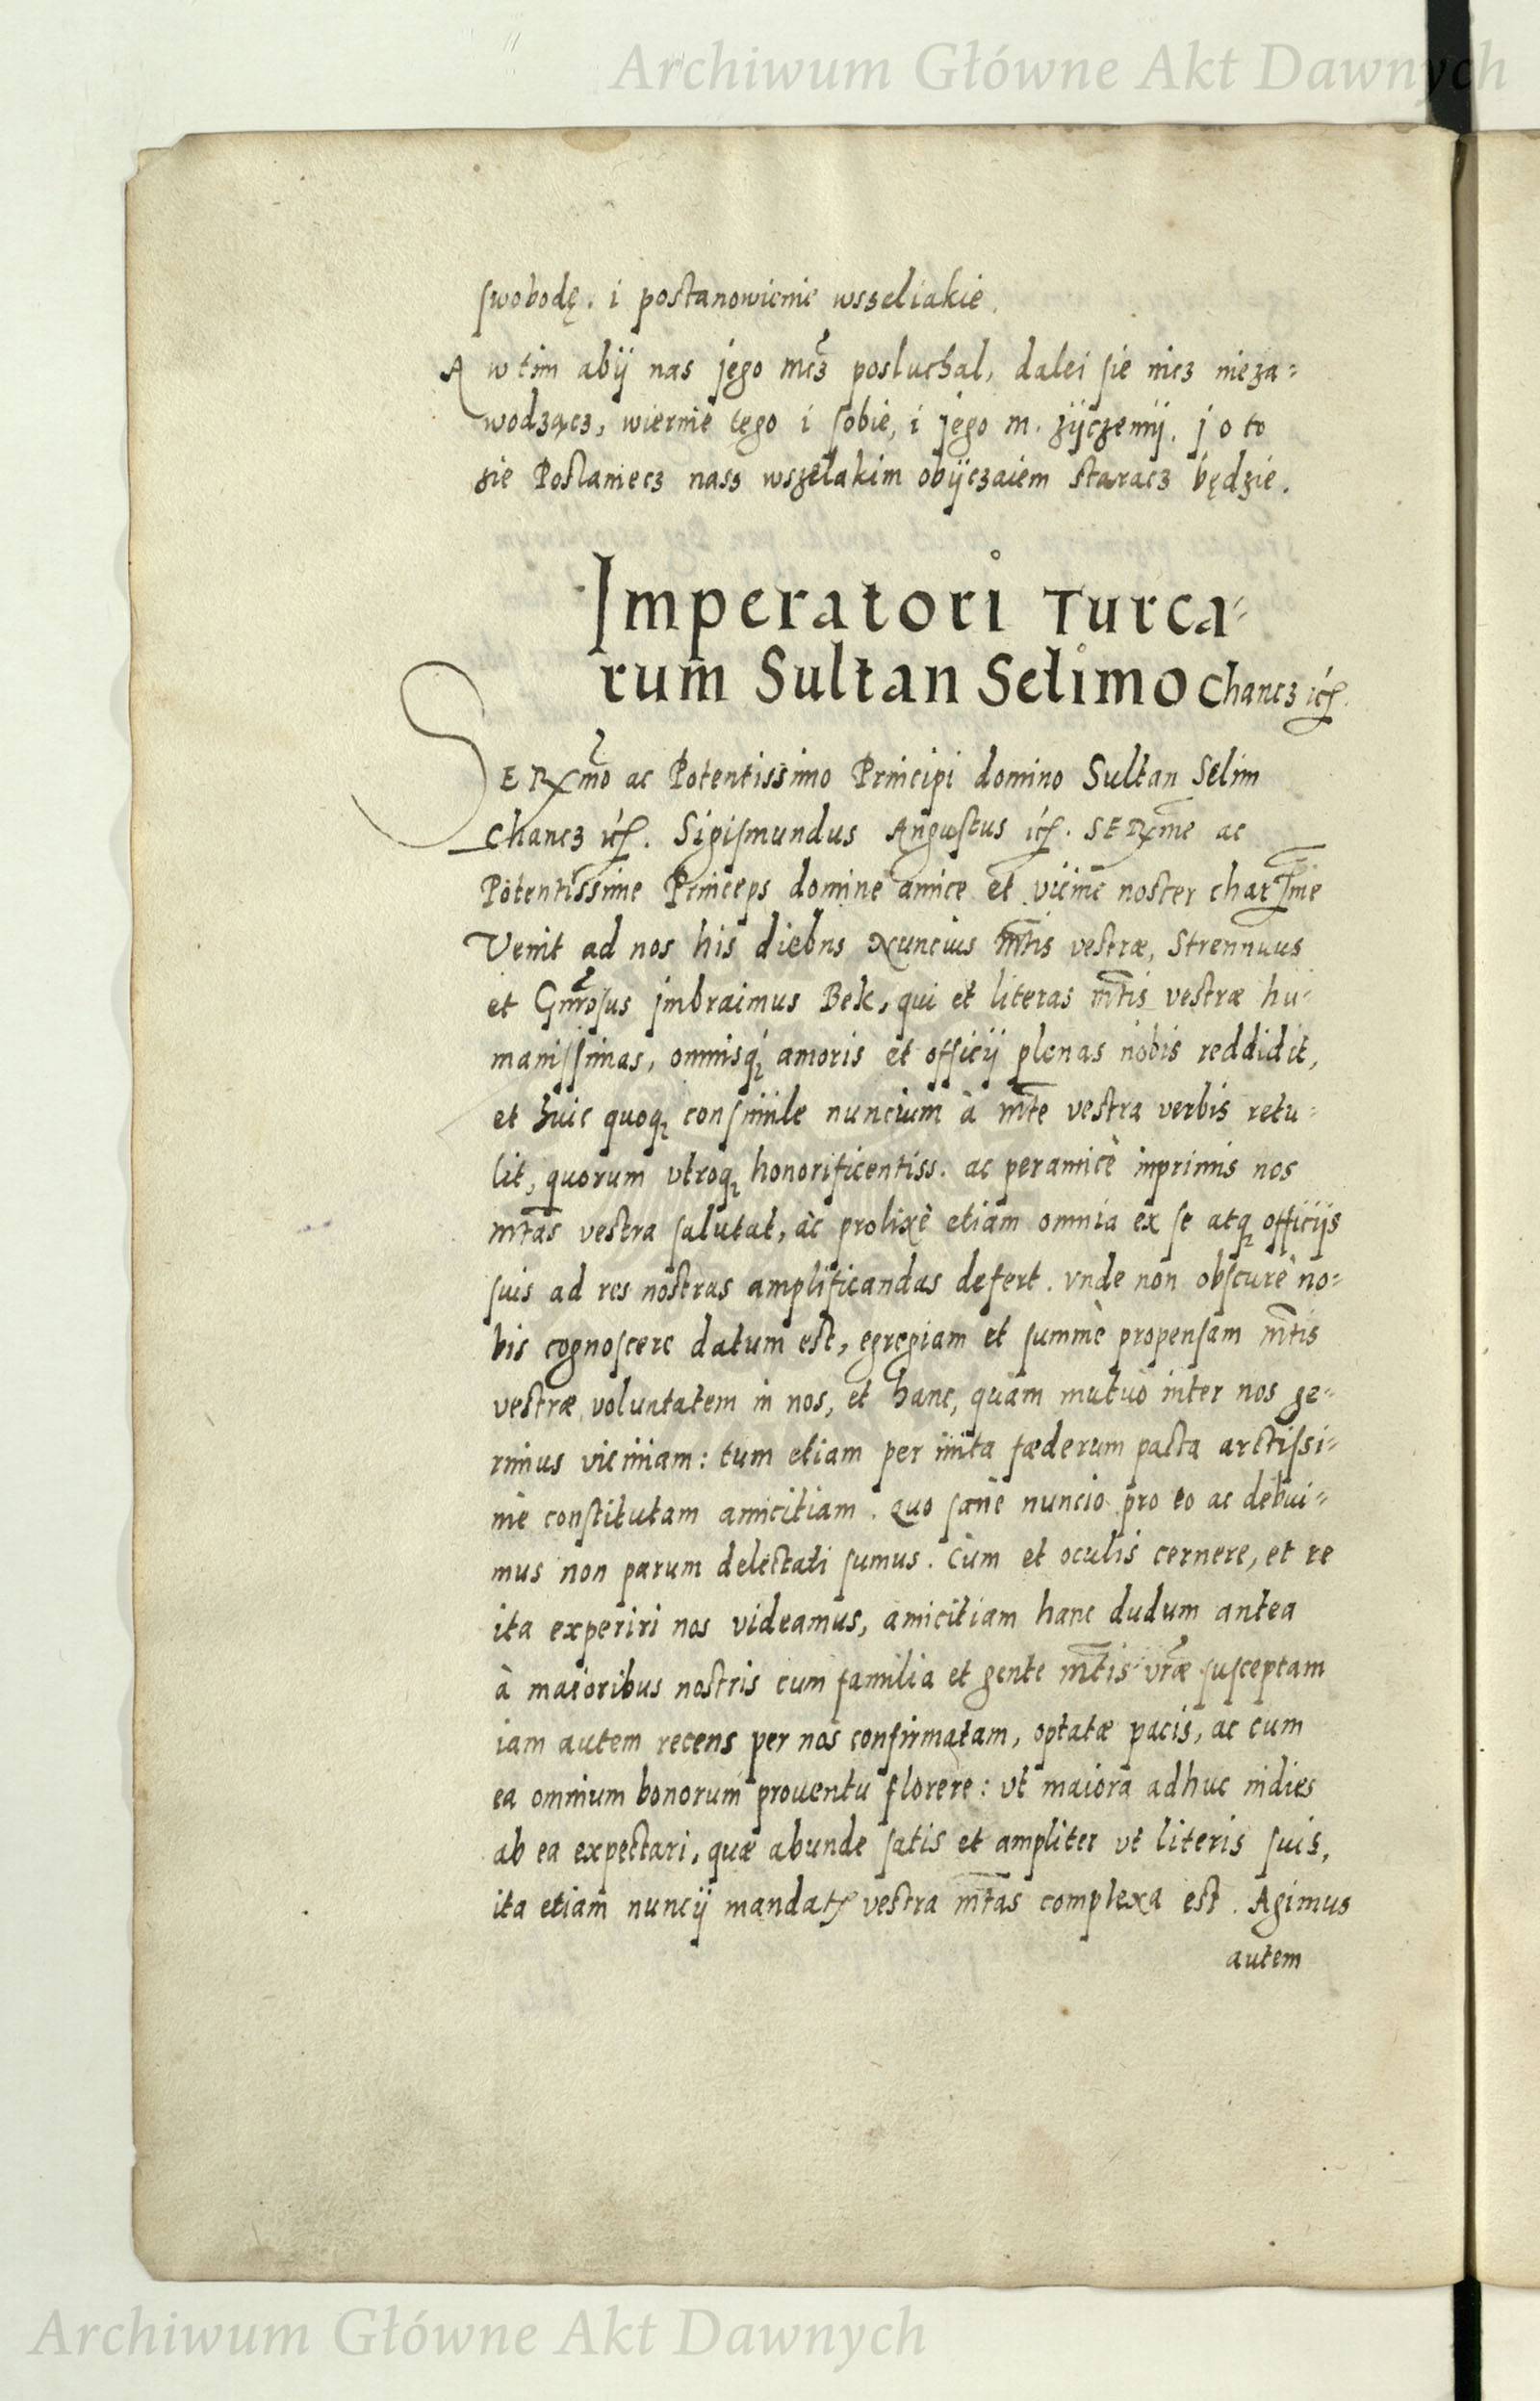 Archiwum Główne Akt Dawnych
swobodę. i postanowienie wszeliakie.
A w tim abÿ nas jego mcz posluchal, dalei sie nicz nieza-
wodzącz, wiernie tego i sobie, i jego m. zÿczemÿ. j o to
sie Poslaniecz nasz wszelakim obÿczaiem staracz będzie.
Imperatori Turca-
rum Sultan Selimo Chancz etc.
SERmo ac Potentissimo Principi domino Sultan Selim
Chancz etc. Sigismundus Augustus etc. SERme ac
Potentissime Princeps domine amice et vicine noster charme
Venit ad nos his diebus Nuncius mtis vestræ, Strennuus
et Gnrosus jmbraimus Bek, qui et literas mtis vestræ hu-
manissimas, omnisq; amoris et officij plenas nobis reddidit,
et huic quoq; consimile nuncium à mte vestra verbis retu-
lit, quorum vtroq; honorificentiss. ac peramicè inprimis nos
mtas vestra salutat, ac prolixè etiam omnia ex se atq; officijs
suis ad res nostras amplificandas defert. vnde non obscurè no-
bis cognoscere datum est, egregiam et summè propensam mtis
vestræ voluntatem in nos, et hanc, quam mutuo inter nos ge-
rimus viciniam: tum etiam per inita fæderum pacta arctissi-
mè constitutam amicitiam. Quo sanè nuncio pro eo ac debui-
mus non parum delectati sumus. Cùm et oculis cernere, et re
ita experiri nos videamus, amicitiam hanc dudum antea
à maioribus nostris cum familia et gente mtis vræ susceptam
iam autem recens per nos confirmatam, optatæ pacis, ac cum
ea omnium bonorum prouentu florere: vt maiora adhuc indies
ab ea expectari, quæ abunde satis et ampliter vt literis suis,
ita etiam nuncij mandatis vestra mtas complexa est. Agimus
autem
Archiwum Główne Akt Dawnych